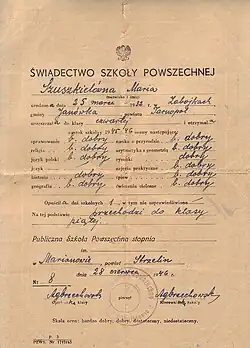 ŚWIADECTWO SZKOŁY POWSZECHNEJ
Szuszkielówna Maria
(nazwisko i imię)
urodzona dnia 25 marca 1932 r. Zabojkach
gminy Janówka powiatu Tarnopol
uczęszczał a do klasy czwartej i otrzymał a
w roku szkolnym 1945/46 oceny następujące:
sprawowanie b. dobry nauka o przyrodzie b. dobry
religia b. dobry arytmetyka z geometrią b. dobry
język polski b. dobry rysunki b. dobry
język zajęcia praktyczne b. dobry
historia b. dobry śpiew b. dobry
geografia b. dobry ćwiczenia cielesne b. dobry
Opuścił a dni szkolnych 1, w tym nie usprawiedliwiono
Na tej podstawie przechodzi do klasy
piątej.
Publiczna Szkoła Powszechna stopnia
w Marianowie, powiat Strzelin
dnia 28 czerwca 1946 r.
Nr 8
Opiekun klasy
Kierownik szkoły
Skala ocen: bardzo dobry, dobry, dostateczny, niedostateczny.